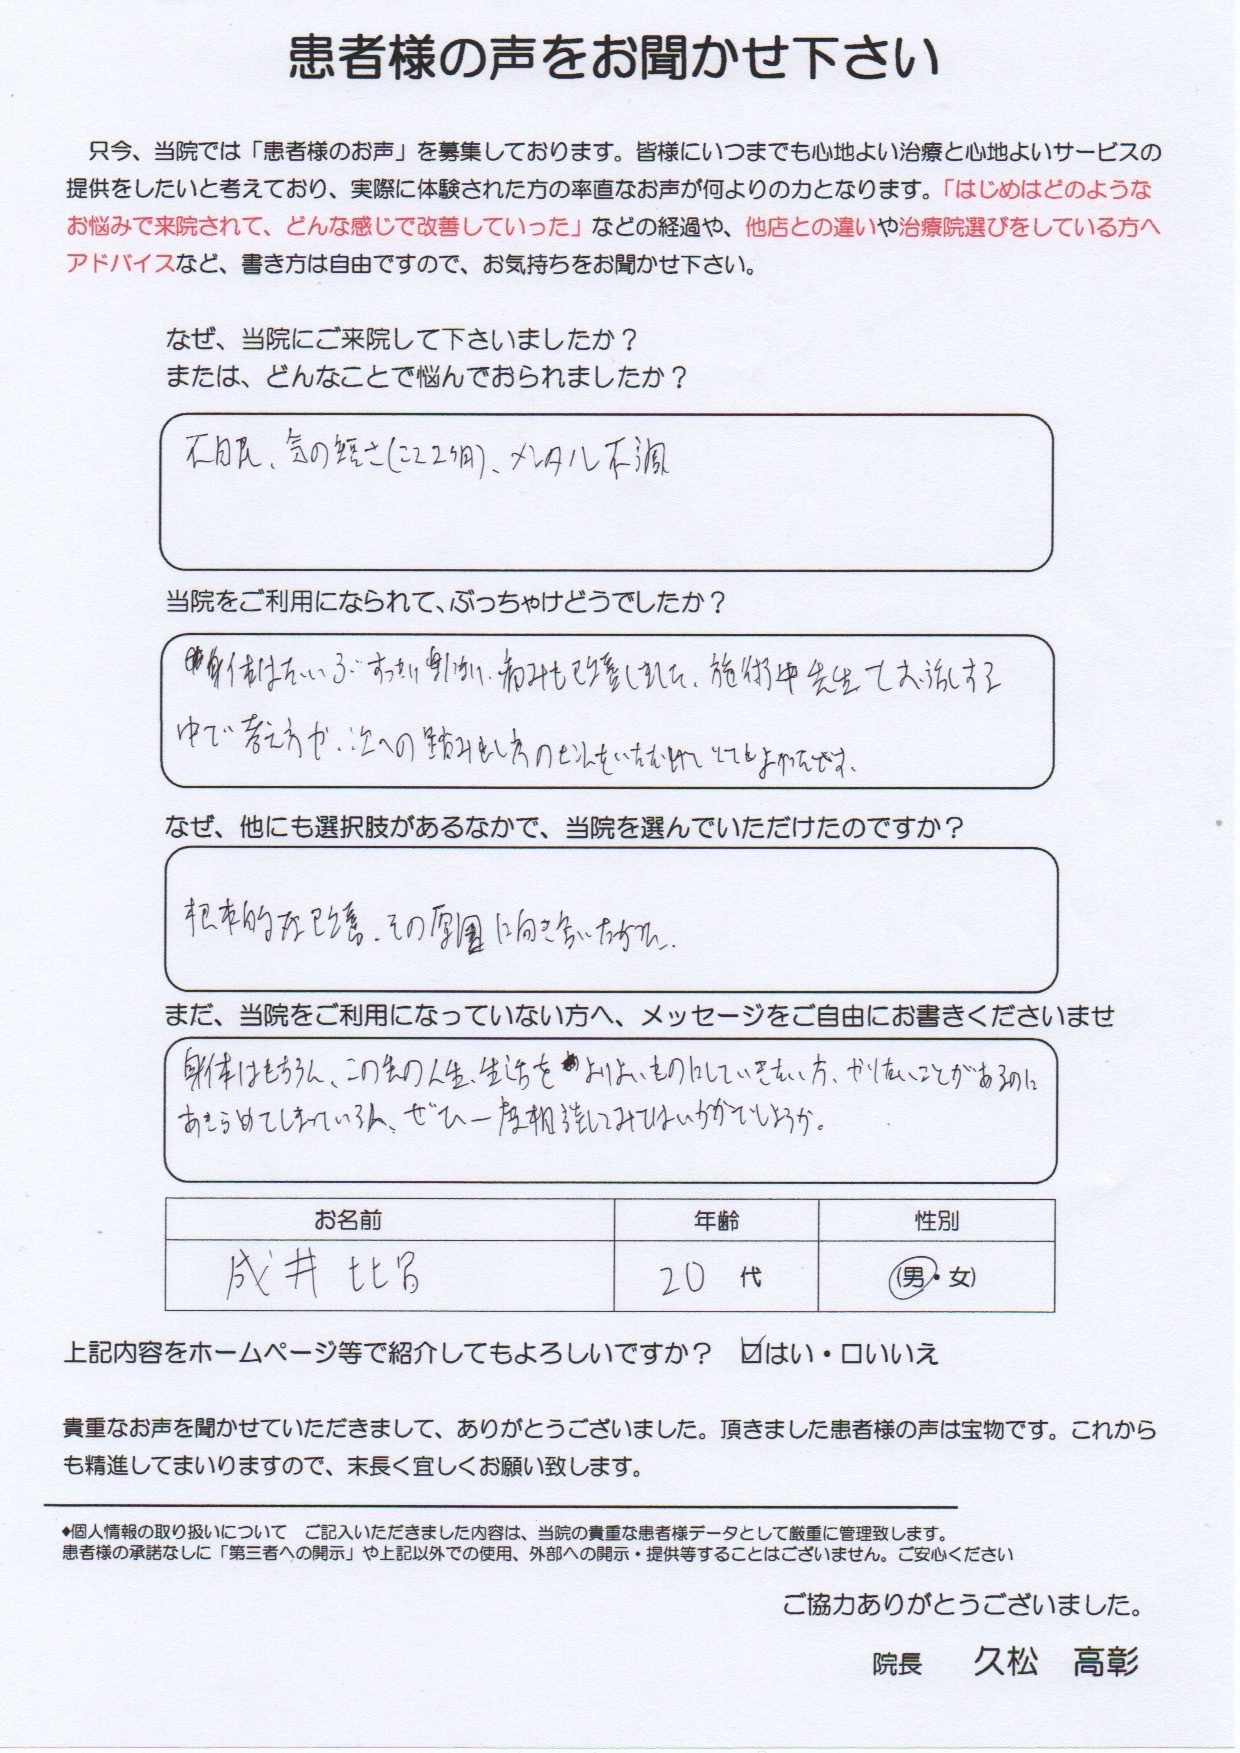 患者様の声をお聞かせ下さい
只今、当院では「患者様のお声」を募集しております。皆様にいつまでも心地よい治療と心地よいサービスの
提供をしたいと考えており、実際に体験された方の率直なお声が何よりの力となります。「はじめはどのような
お悩みで来院されて、どんな感じで改善していった」などの経過や、他店との違いや治療院選びをしている方へ
アドバイスなど、書き方は自由ですので、お気持ちをお聞かせ下さい。
なぜ、当院にご来院して下さいましたか？
または、どんなことで悩んでおられましたか？
不眠、気の短さ(ここ2ヶ月)、メンタル不調
当院をご利用になられて、ぶっちゃけどうでしたか？
身体はだいぶすっきり 痛みも改善しました、施術中先生とお話しする
中で考え方や、次への踏み出し方のヒントをいただけて とてもよかったです。
なぜ、他にも選択肢があるなかで、当院を選んでいただけたのですか？
根本的な改善、その原因に向き合いたかった。
まだ、当院をご利用になっていない方へ、メッセージをご自由にお書きくださいませ
身体はもちろん、この先の人生、生活をよりよいものにしていきたい方、やりたいことがあるのに
あきらめてしまっている人、ぜひ一度相談してみてはいかがでしょうか。
お名前 年齢 性別
成井 20 代 (男・女)
上記内容をホームページ等で紹介してもよろしいですか？ ☑はい・口いいえ
貴重なお声を聞かせていただきまして、ありがとうございました。頂きました患者様の声は宝物です。これから
も精進してまいりますので、末長く宜しくお願い致します。
♦個人情報の取り扱いについて ご記入いただきました内容は、当院の貴重な患者様データとして厳重に管理致します。
患者様の承諾なしに「第三者への開示」や上記以外での使用、外部への開示・提供等することはございません。ご安心ください
ご協力ありがとうございました。
院長 久松 高彰